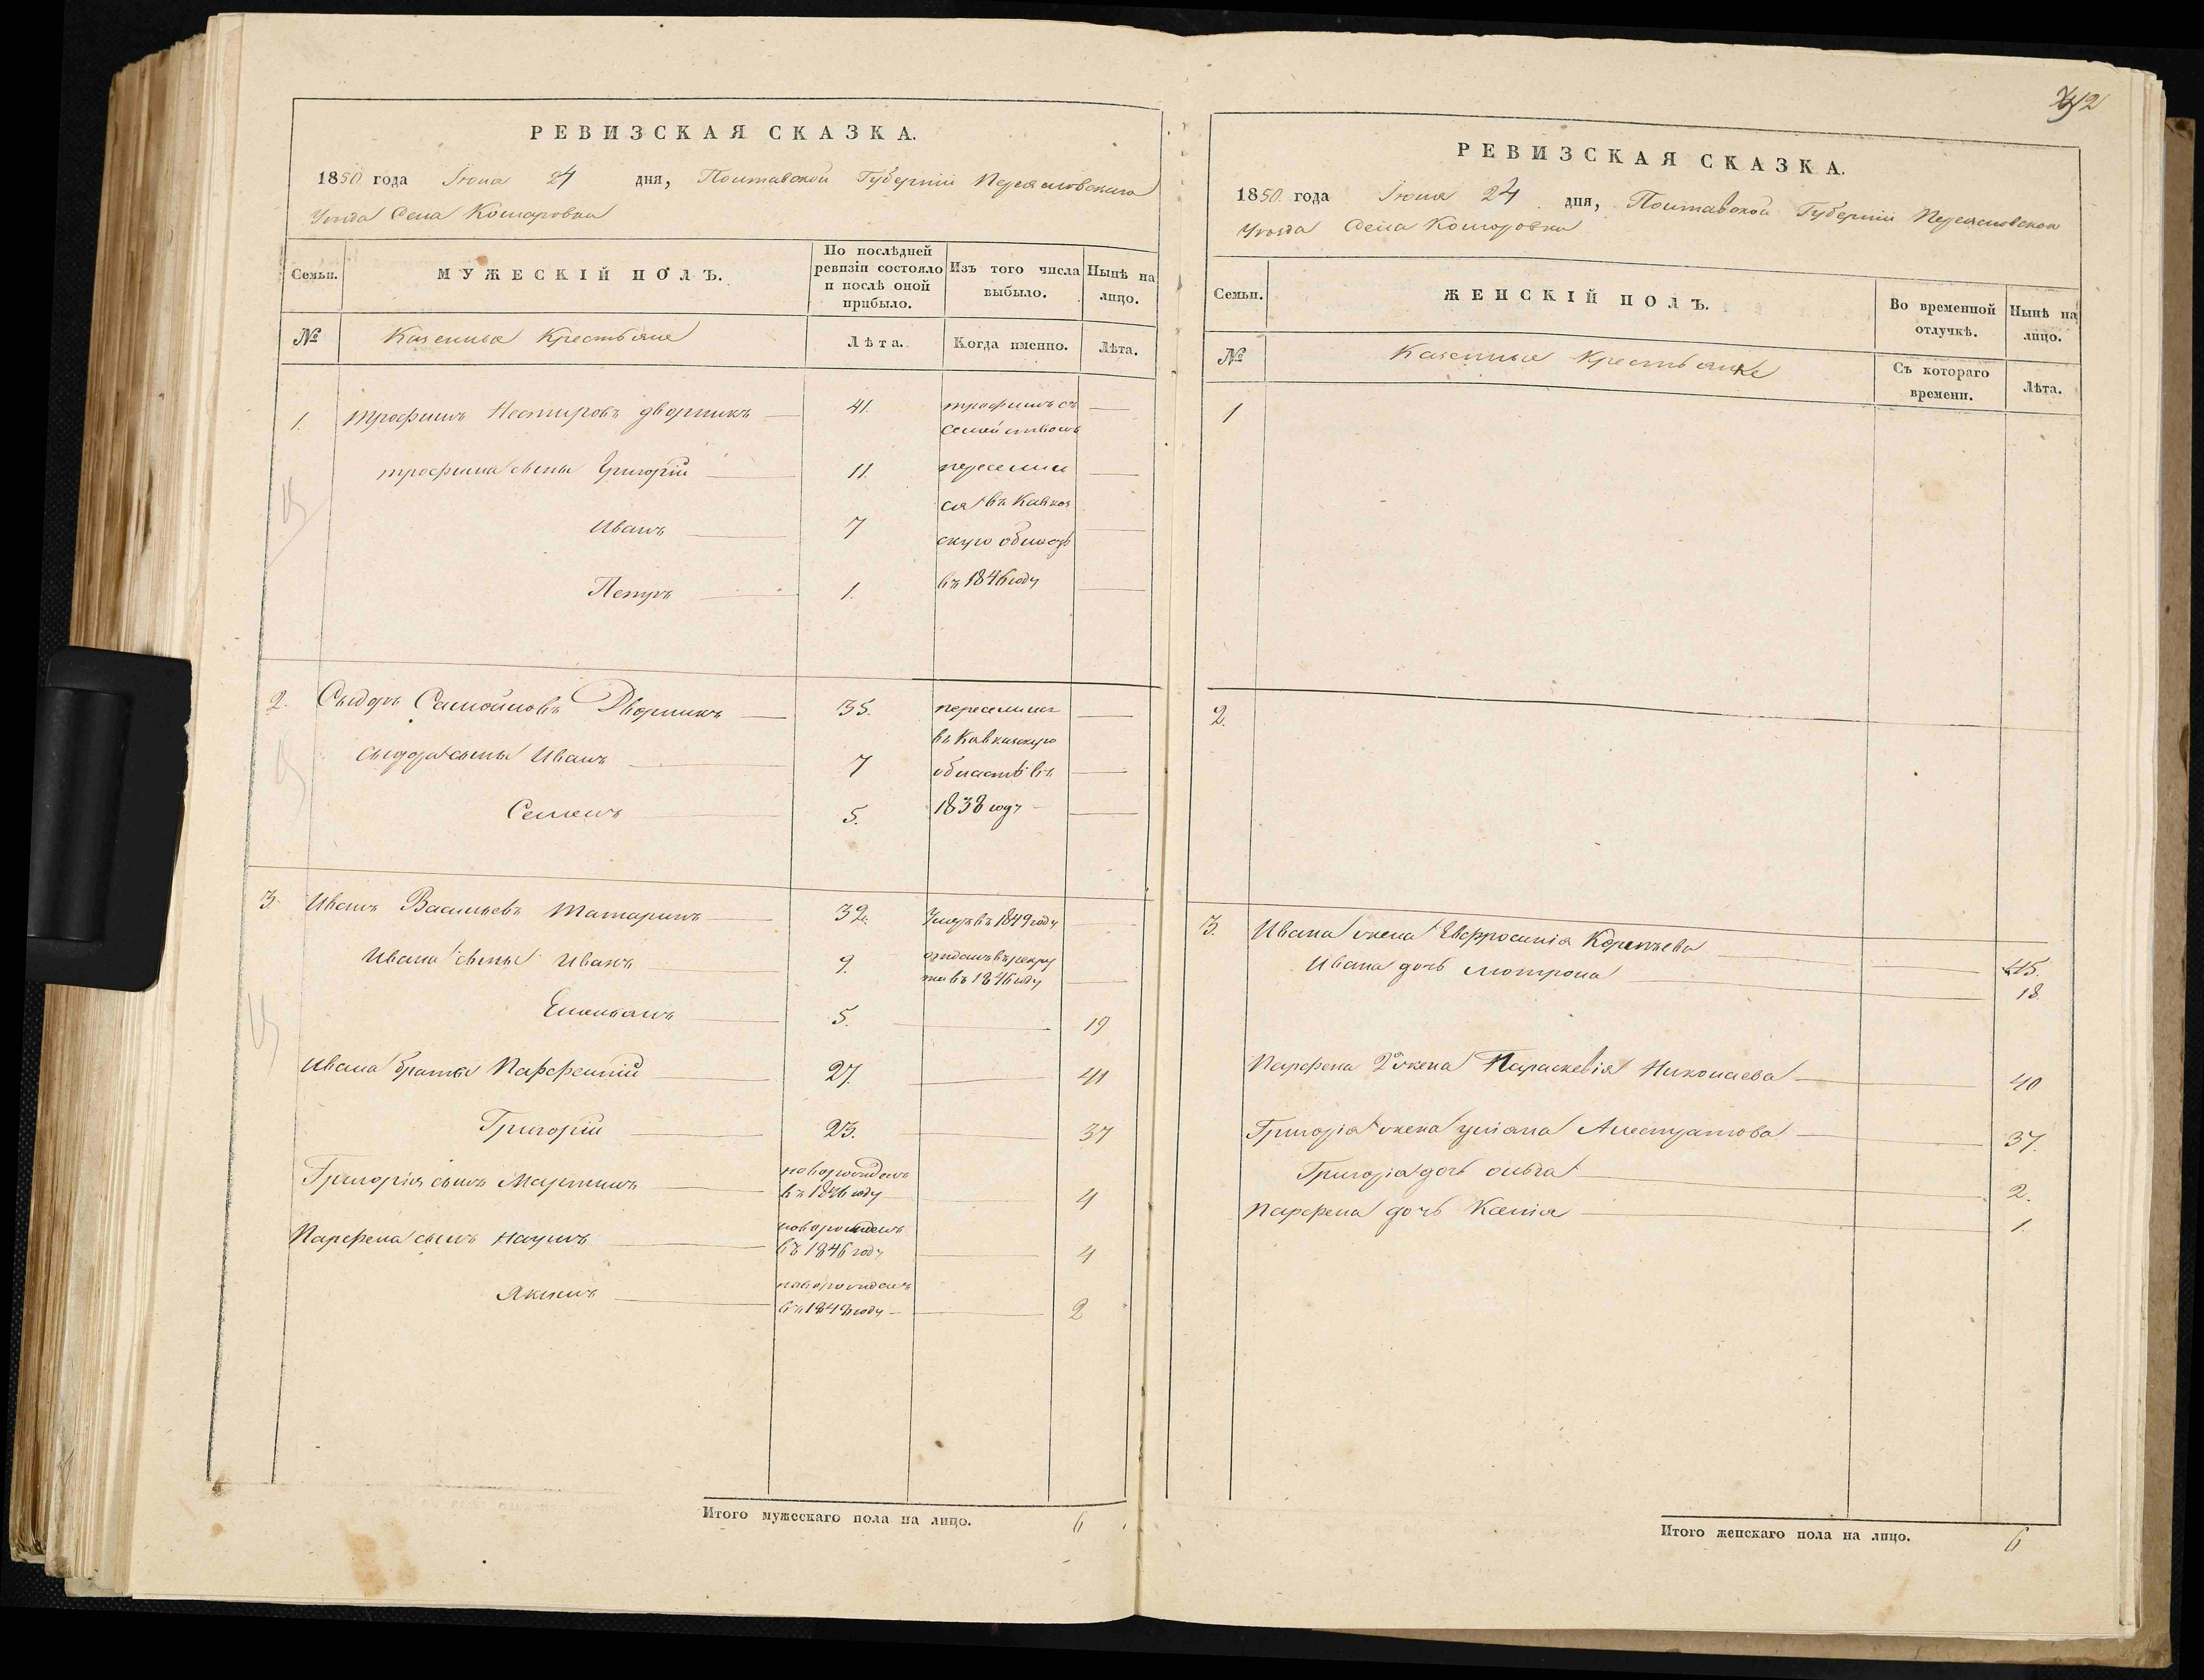 РЕВИЗСКАЯ СКАЗКА.
1850 года Іюня 24 дня, Полтавской Губерніи Переясловскаго
Уезда Села Комаровки
Семьи.
МУЖЕСКІЙ ПОЛЪ.
По послѣдней ревизіи состояло и послѣ оной прибыло.
Изъ того числа выбыло.
Нынѣ на лицо.
№
Казенные Крестьяне
Лѣта.
Когда именно.
Лѣта.
1. Трофимъ Нестировъ дворникъ 41. трофимъ съ
семействомъ
трофима сыны Григорій 11. переселил
ся въ Кавказ
Иванъ 7 скую область
Петръ 1. въ 1846 году
2. Сыдоръ Самойловъ Дворникъ 35. переселился
въ Кавказскую
сыдора сыны Иванъ 7 областъ въ
Семенъ 5. 1838 году
3. Иванъ Васильевъ татаринъ 32. Умеръ въ 1849 году
Ивана сыны Иванъ 9. отданъ въ рекру
ты въ 1846 году
Емельянъ 5. 19
Ивана братья Парфентій 27. 41
Григорій 23. 37
Григорія сынъ Мартинъ новорожденъ
въ 1846 году 4
Парфена сынъ Наумъ новорожденъ
въ 1846 году 4
Якимъ новорожденъ
въ 1848 году 2
Итого мужескаго пола на лицо. 6
РЕВИЗСКАЯ СКАЗКА.
1850 года Іюня 24 дня, Полтавской Губерніи Переясловскаго
Уезда Села Комаровки
Семьи.
ЖЕНСКІЙ ПОЛЪ.
Во временной отлучкѣ.
Нынѣ на лицо.
№
Казенные Крестьянке
Съ котораго времени.
Лѣта.
1
2.
3. Ивана жена Евфросинія Корнѣева 45.
Ивана дочь мотрона 18.
Парфена 2я жена Параскевія Николаева 40
Григорія жена уліана 37.
Григорія дочь ольга 2.
Парфена дочь Ксенія 1.
Итого женскаго пола на лицо. 6